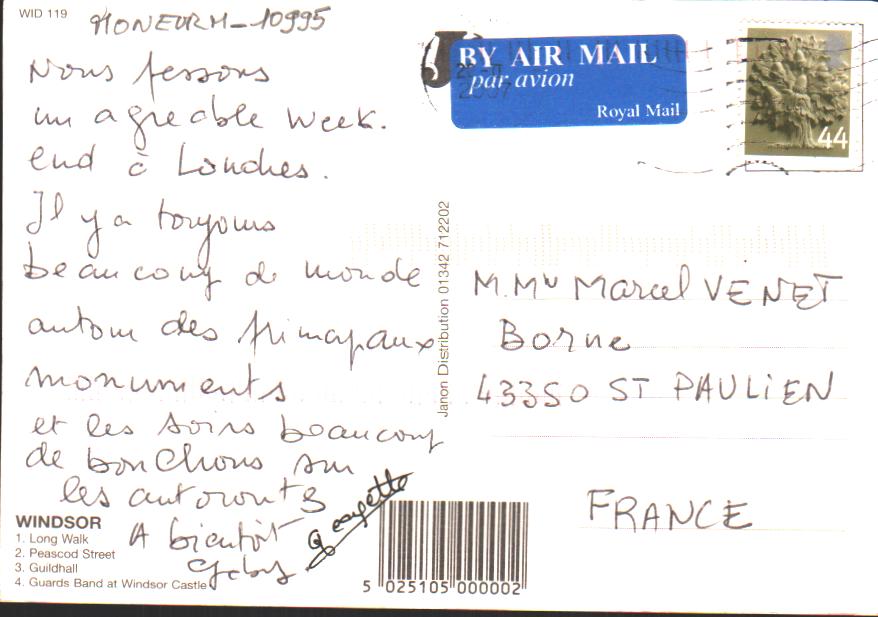 WID 119
MONEURM-10995
Nous passons
un agreable week.
end à Londres.
Il y a toujours
beaucoup de monde
autour des principaux
monuments
et les soirs beaucoup
de bouchons sur
les autoroutes
A bientôt
Gaby Georgette
WINDSOR
1. Long Walk
2. Peascod Street
3. Guildhall
4. Guards Band at Windsor Castle
Janon Distribution 01342 712202
5 025105 000002
BY AIR MAIL
par avion
Royal Mail
2007
44
M. Mme Marcel VENET
Borne
43350 ST PAULIEN
FRANCE